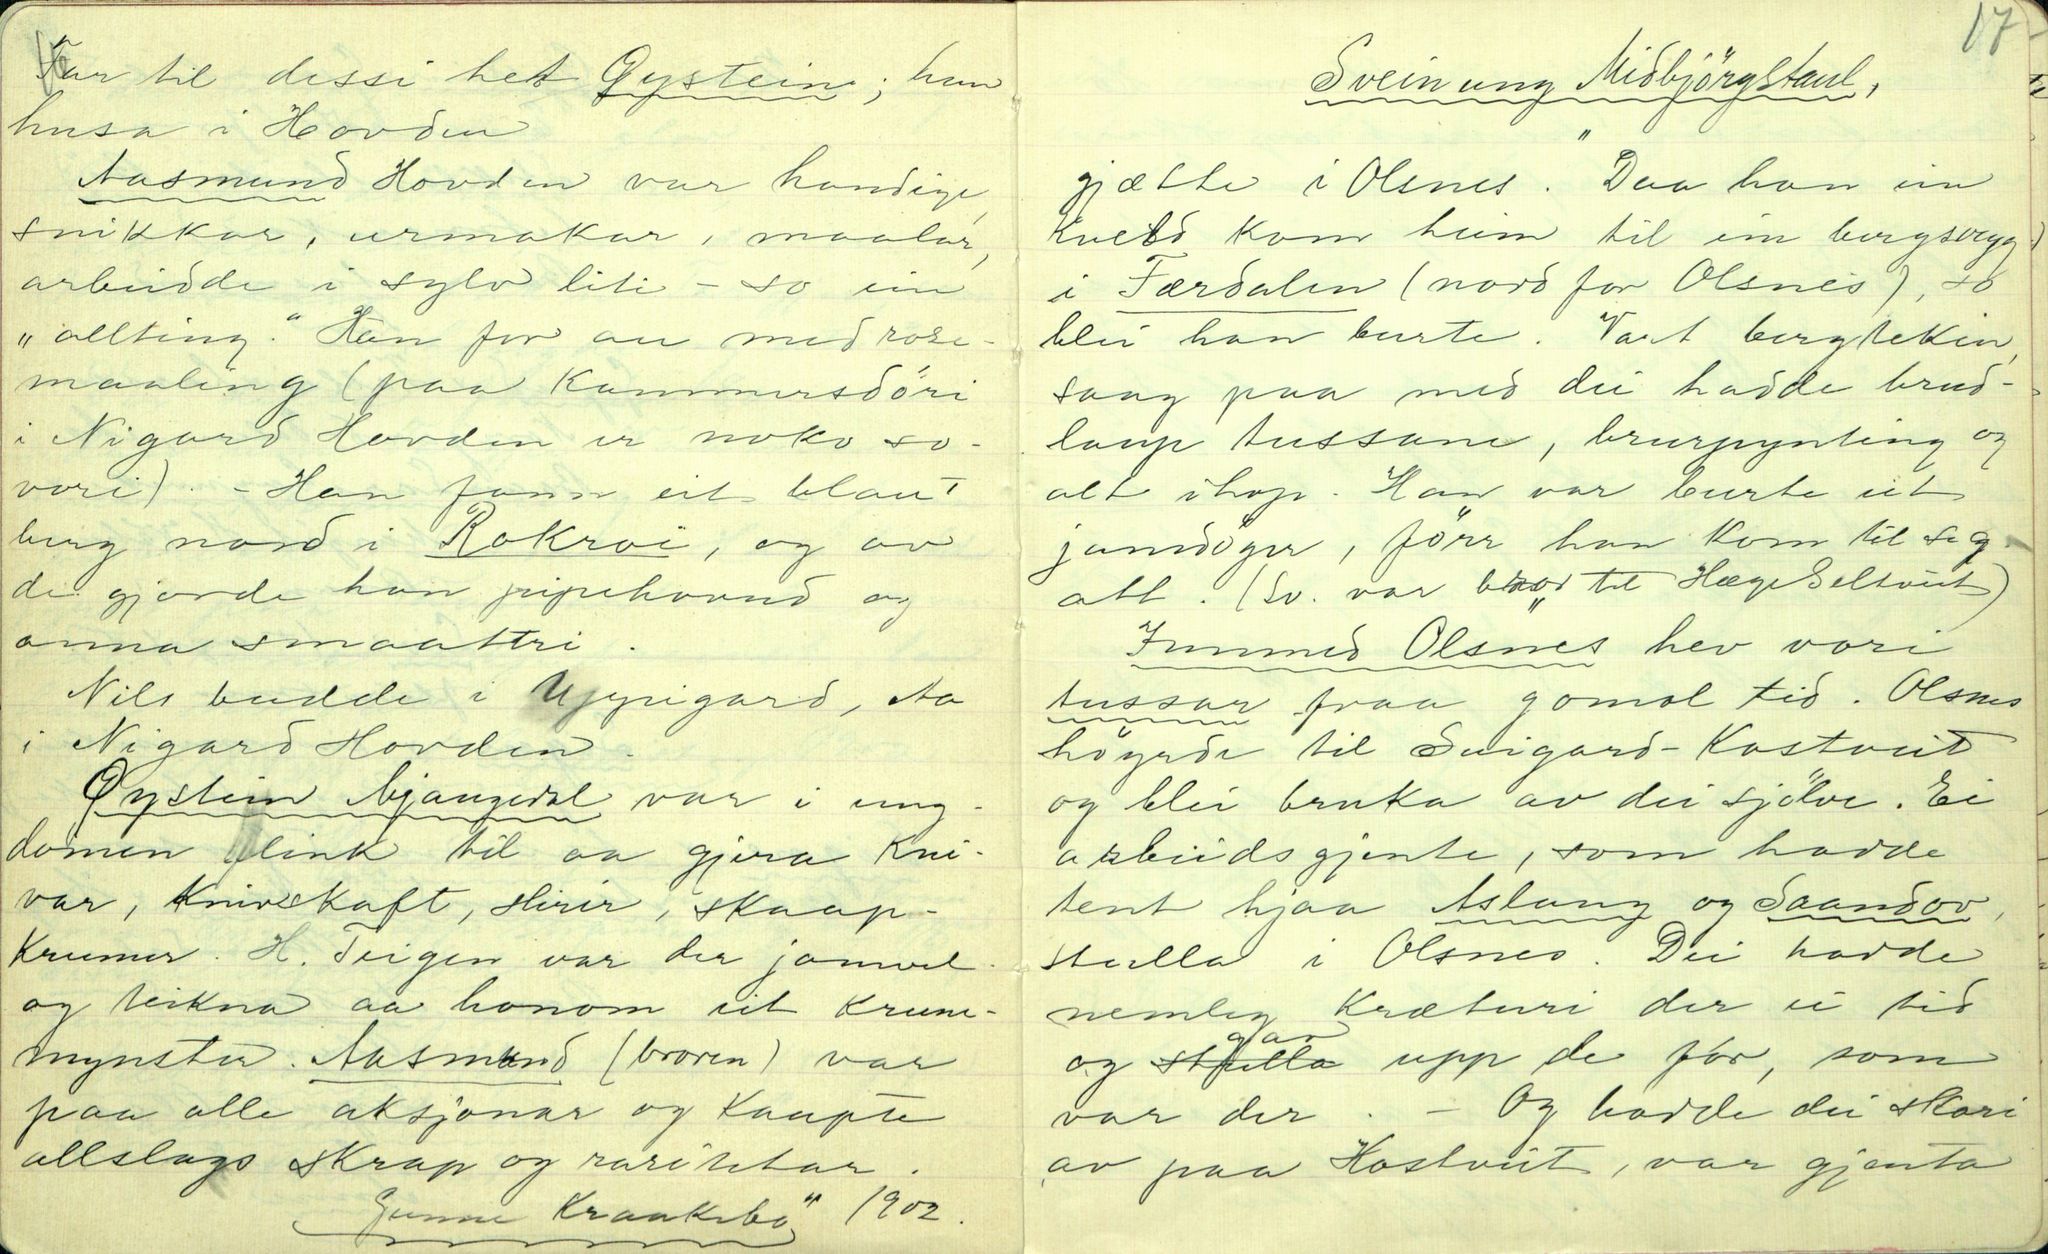 Far til dessi het Øystein; han
husa i Hovden
Aasmund Hovden var handige,
snikkar, urmakar, maalar,
arbeidde i sylv liti - so ein
"allting." Han for au med rose-
maaling (paa Kammersdöri
i Nigard Hovden er noko so-
vori). - Han fann eit blaut
berg nord i Rokroi, og av
de gjorde han pipehovud og
anna smaattri.
Nils budde i Uppigard, Aa
i Nigard Hovden.
Øystein Mjaugedal var i ung-
domen flink til aa gjera Kni-
var, Knivskaft, slirir, skaap-
Krumer. H. Teigen var der jamvel
og teikna aa honom eit Krune-
mynster. Aasmund (broren) var
paa alle aksjonar og Kaupte
allslags skrap og raritetar.
Gunne Kraakebø 1902.
17
Sveinung Midbjörgstaul,
gjætte i Olsnes. Daa han ein
Kveld Kom heim til ein bergsvegg
i Færdalen (nord for Olsnes), so
blei han burte. Vart bergtekin,
saag paa med dei hadde brud-
laup tussane, brurpynting og
alt ihop. Han var burte eit
jamdöger, förr han Kom til seg
att. (Sv. var bror til Hæge Seltveit)
Innmed Olsnes hev vori
tussar fraa gomol tid. Olsnes
höyrde til Suigard-Kostveit
og blei bruka av dei sjölve. Ei
arbeidsgjente, som hadde
tent hjaa Aslaug og Saandov,
stulla i Olsnes. Dei hadde
nemleg Kræturi der ei tid
og stulla gav upp de fór, som
var der. - Og hadde dei skori
av paa Kostveit, var gjenta